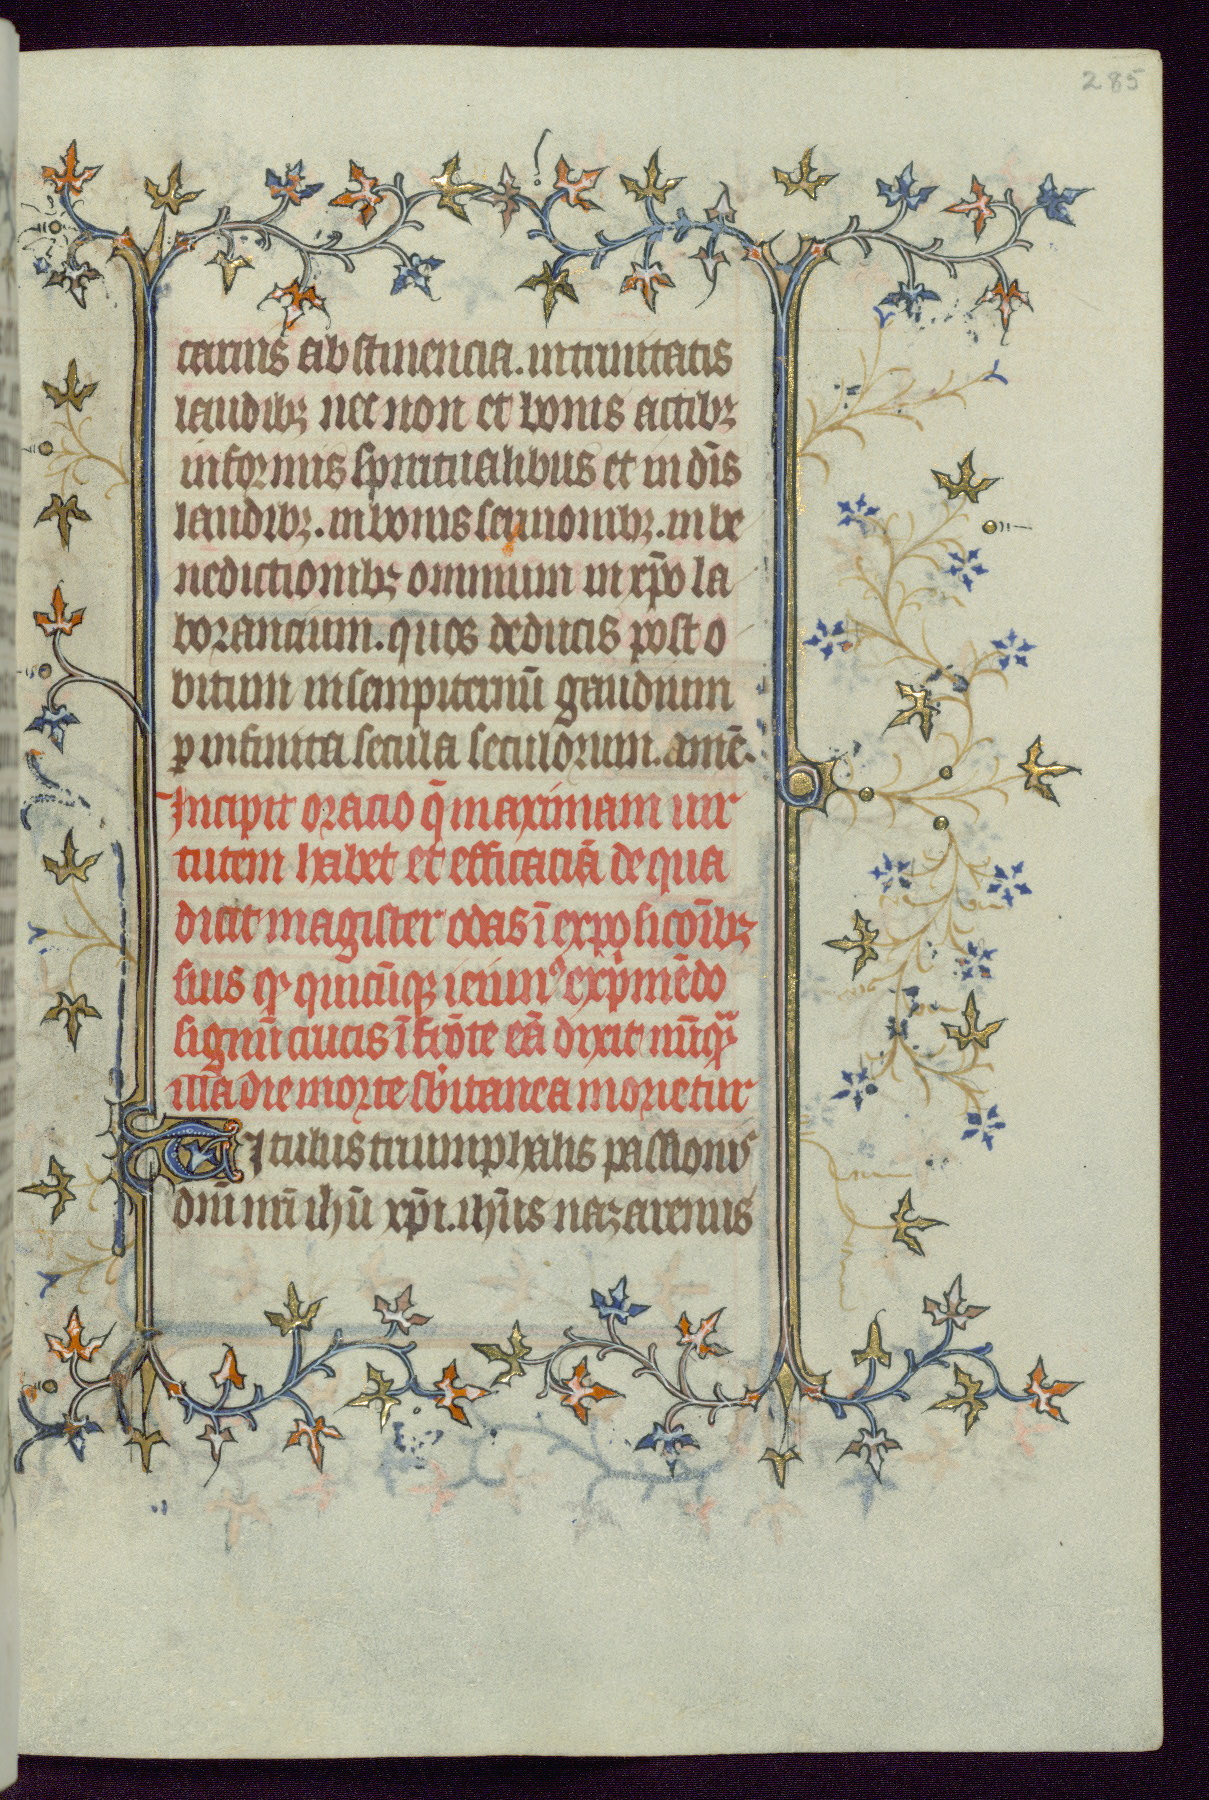 285
carnis abstinencia. in trinitatis
laudibꝫ nec non et bonis actibꝫ
in formis spiritualibus et in dīs
laudibꝫ. in bonis sermonibꝫ. in be
nedictionibꝫ omnium in xp̄o la
borancium. quos deducis post o
bitum in sempiternū gaudium
ꝑ infinita secula seculorum. amē.
Incipit oracio q̄ maximam uir
tutem habet et efficaciā de qua
dicit magister odas ī exposicōībꝫ
suis qꝛ quicūqꝫ ieiunꝰ exp̄mēdo
signū crucis ī frōte eā dixit nūqᷓ
illa die morte sb̓itanea morietur
Titulus triumphalis passionis
dn̄i nr̄i ihū xp̄i. ihūs nazarenus